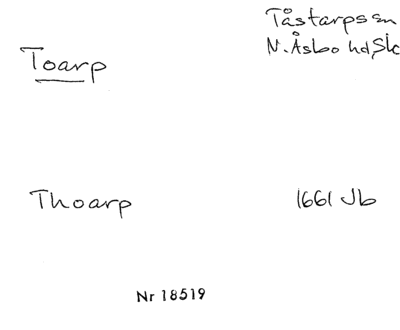 Toarp
Tåstarps sn
N. Åsbo hd, Sk
Thoarp
1661 Jb
Nr 18519